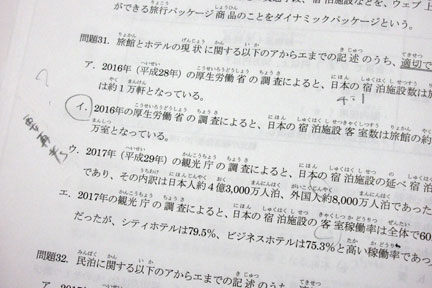 ができる旅行パッケージ商品のことをダイナミックパッケージという。
問題31. 旅館とホテルの現状に関する以下のアからエまでの記述のうち、適切で
ア. 2016年（平成28年）の厚生労働省の調査によると、日本の宿泊施設数は
は約1万軒となっている。
4:1
イ. 2016年の厚生労働省の調査によると、日本の宿泊施設客室数は旅館の約
万室となっている。
ウ. 2017年（平成29年）の観光庁の調査によると、日本の宿泊施設の延べ宿泊
であり、その内訳は日本人約4億3,000万人泊、外国人約8,000万人泊であった
エ. 2017年の観光庁の調査によると、日本の宿泊施設の客室稼働率は全体で60.
だったが、シティホテルは79.5%、ビジネスホテルは75.3%と高い稼働率であっ
問題32. 民泊に関する以下のアからエまでの記述のうち、適切